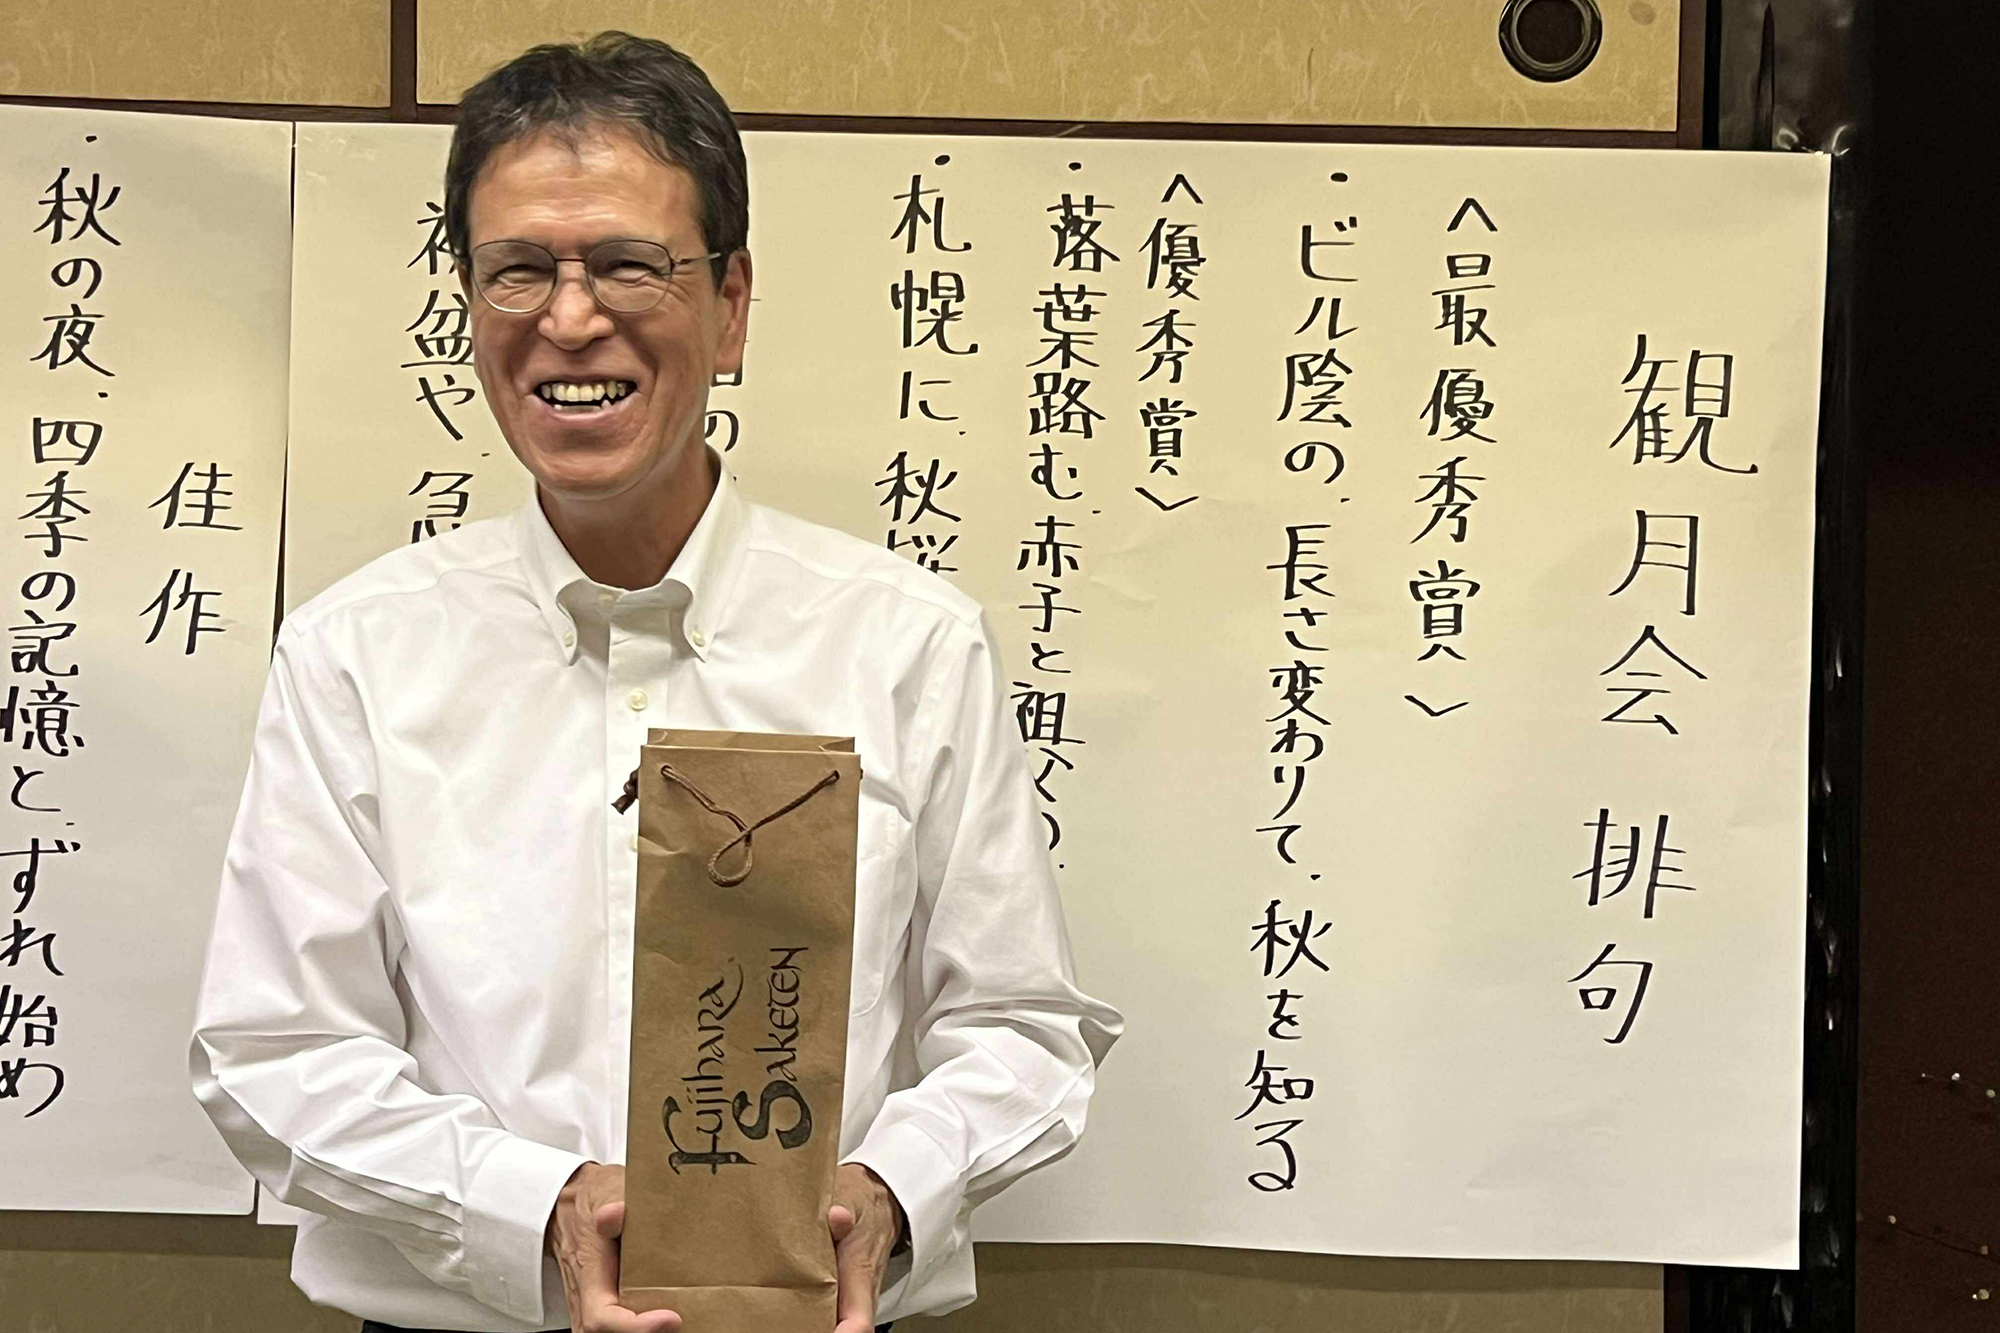 観月会 排句
<最優秀賞>
・ビル陰の、長さ変わりて、秋を知る
<優秀賞>
・落葉路む、赤子と祖父の、
・札幌に、秋桜
の
初盆や、急
佳作
・秋の夜、四季の記憶と、ずれ始め
Fujihara
Saketen